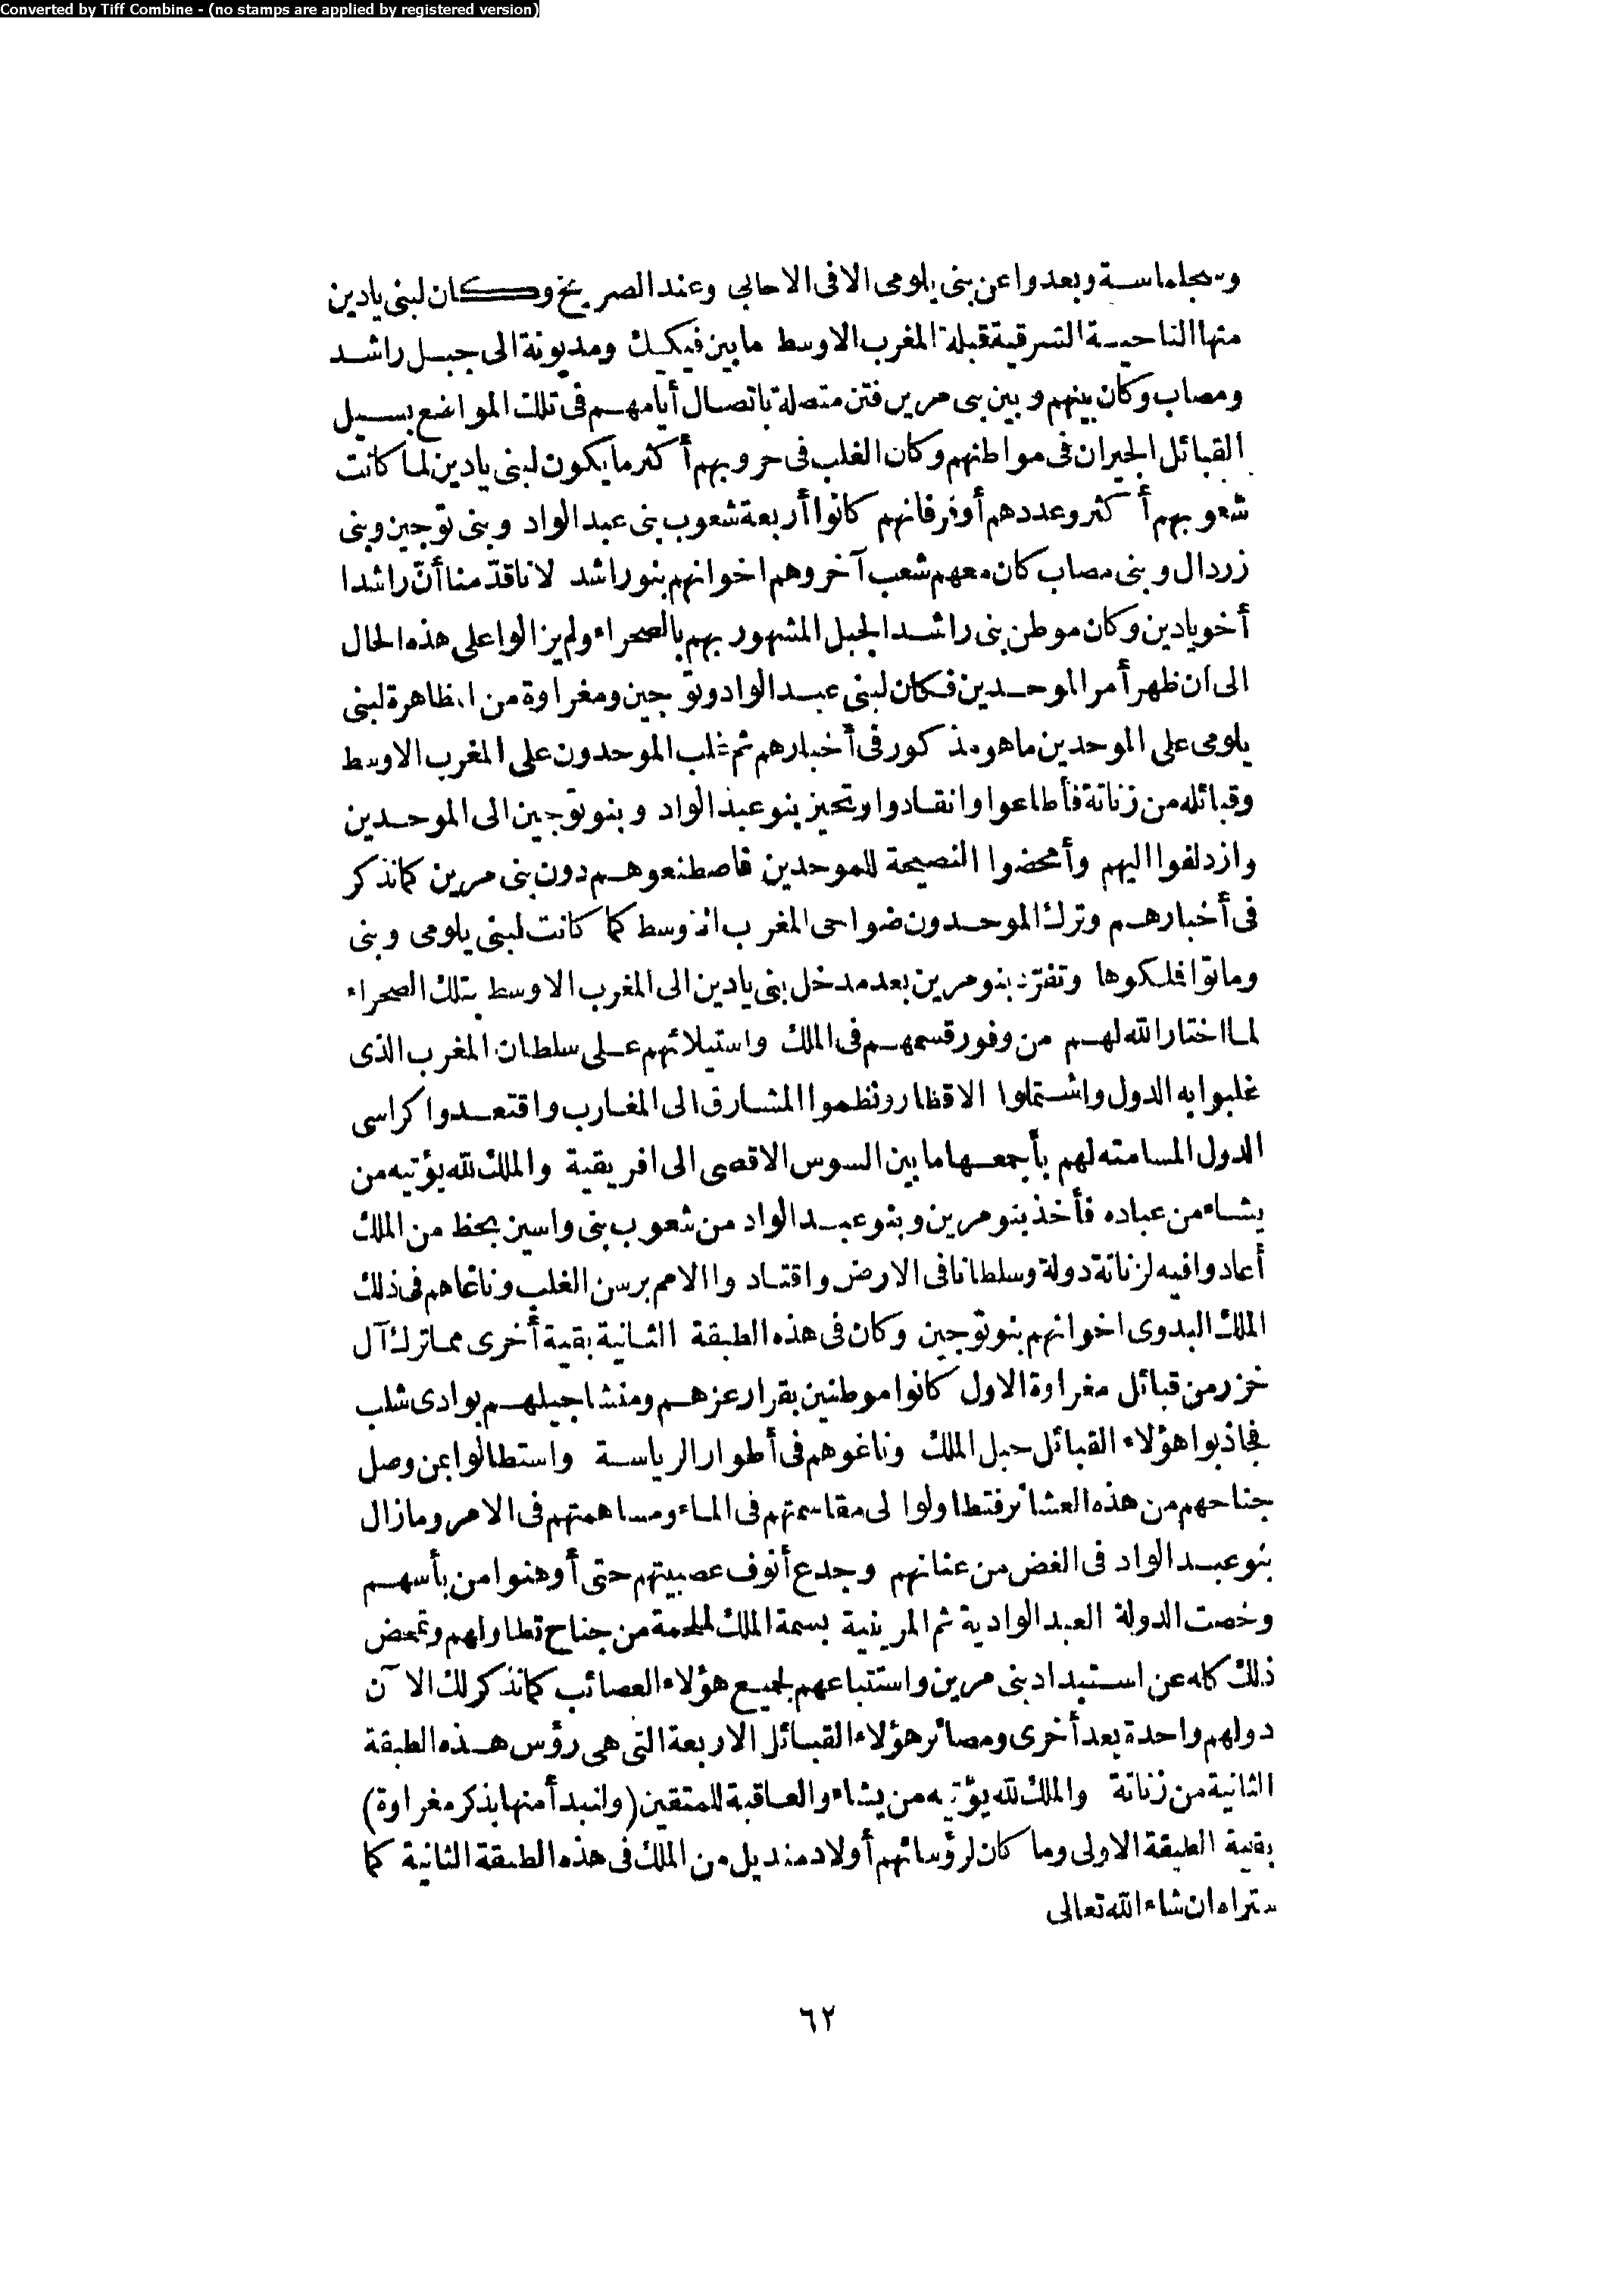 Converted by Tiff Combine - (no stamps are applied by registered version)
وسجلماسة وبعدوا عن بنى يلومى الا فى الاحايى وعند الصريخ وكان لبنى يادين
منها الناحية الشرقية قبلة المغرب الاوسط ما بين فيكيك ومديونة الى جبل راشد
ومصاب وكان بينهم وبين بنى مرين فتن متصلة باتصال أيامهم فى تلك المواضع بسبيل
القبائل الجيران فى مواطنهم وكان الغلب فى حروبهم أكثر ما يكون لبنى يادين لما كانت
شعوبهم أكثر وعددهم أوفر فانهم كانوا أربعة شعوب بنى عبد الواد وبنى توجين وبنى
زردال وبنى مصاب كان معهم شعب آخر وهم اخوانهم بنو راشد لانا قدّمنا أنّ راشدا
أخو يادين وكان موطن بنى راشد الجبل المشهور بهم بالصحراء ولم يزالوا على هذه الحال
الى ان ظهر أمر الموحدين فكان لبنى عبد الواد وتوجين ومغراوة من المظاهرة لبنى
يلومى على الموحدين ما هو مذكور فى أخبارهم ثم غلب الموحدون على المغرب الاوسط
وقبائله من زناتة فأطاعوا وانقادوا وتحيز بنو عبد الواد وبنو توجين الى الموحدين
وازدلفوا اليهم وأمحضوا النصيحة للموحدين فاصطنعوهم دون بنى مرين كما نذكر
فى أخبارهم وترك الموحدون ضواحى المغرب الاوسط كما كانت لبنى يلومى وبنى
ومانوا فملكوها وتفرّد بنو مرين بعد مدخل بنى يادين الى المغرب الاوسط بتلك الصحراء
لما اختار الله لهم من وفور قسمهم فى الملك واستيلائهم على سلطان المغرب الذى
غلبوا به الدول واشتملوا الاقطار ونظموا المشارق الى المغارب واقتعدوا كراسى
الدول المسامته لهم بأجمعها ما بين السوس الاقصى الى افريقية والملك لله يؤتيه من
يشاء من عباده فأخذ بنو مرين وبنو عبد الواد من شعوب بنى واسين بحظ من الملك
أعادوا فيه لزناتة دولة وسلطانا فى الارض واقتادوا الامم برسن الغلب وناغاهم فى ذلك
الملك البدوى اخوانهم بنو توجين وكان فى هذه الطبقة الثانية بقية أخرى مما ترك آل
خزر من قبائل مغراوة الاول كانوا موطنين بقرار عزهم ومنشا جيلهم بوادى شلب
فجاذبوا هؤلاء القبائل حبل الملك وناغوهم فى أطوار الرياسة واستطالوا بمن وصل
جناحهم من هذه العشائر فتطاولوا لى مقاسمتهم فى الماء ومساهمتهم فى الامر وما زال
بنو عبد الواد فى الغض من عنانهم وجدع أنوف عصبيتهم حتى أوهنوا من بأسهم
وخصت الدولة العبد الوادية ثم المرينية بسمة الملك لملحمة من جناح تطاولهم وتمحض
ذلك كله عن استبداد بنى مرين واستتباعهم لجميع هؤلاء العصائب كما نذكر لك الآن
دولهم واحدة بعد أخرى ومصائر هؤلاء القبائل الاربعة التى هى رؤس هذه الطبقة
الثانية من زناتة والملك لله يؤتيه من يشاء والعاقبة للمتقين (ولنبدأ منها بذكر مغراوة)
بقية الطبقة الاولى وما كان لرؤسائهم أولاد منديل من الملك فى هذه الطبقة الثانية كما
ستراه ان شاء الله تعالى
٦٢